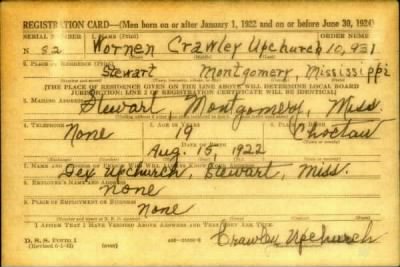 REGISTRATION CARD—(Men born on or after January 1, 1922 and on or before June 30, 1924)
SERIAL NUMBER 1. NAME (Print) ORDER NAME
N 82 Wornen Crawley Upchurch 10,931
2. PLACE OF RESIDENCE (Print)
Stewart Montgomery, Mississippi
[THE PLACE OF RESIDENCE GIVEN ON THE LINE ABOVE WILL DETERMINE LOCAL BOARD
JURISDICTION; LINE 2 OF REGISTRATION CERTIFICATE WILL BE IDENTICAL]
3. MAILING ADDRESS
Stewart, Montgomery, Miss.
4. TELEPHONE 5. AGE IN YEARS
None 19 Choctaw
DATE OF BIRTH
Aug. 15, 1922
7. NAME AND ADDRESS OF PERSON WHO WILL ALWAYS KNOW YOUR ADDRESS
Dex Upchurch, Stewart, Miss.
8. EMPLOYER'S NAME AND ADDRESS
None
9. PLACE OF EMPLOYMENT OR BUSINESS
None
I AFFIRM THAT I HAVE VERIFIED ABOVE ANSWERS AND THAT THEY ARE TRUE.
D. S. S. FORM 1
(Revised 6-1-42)
Crawley Upchurch